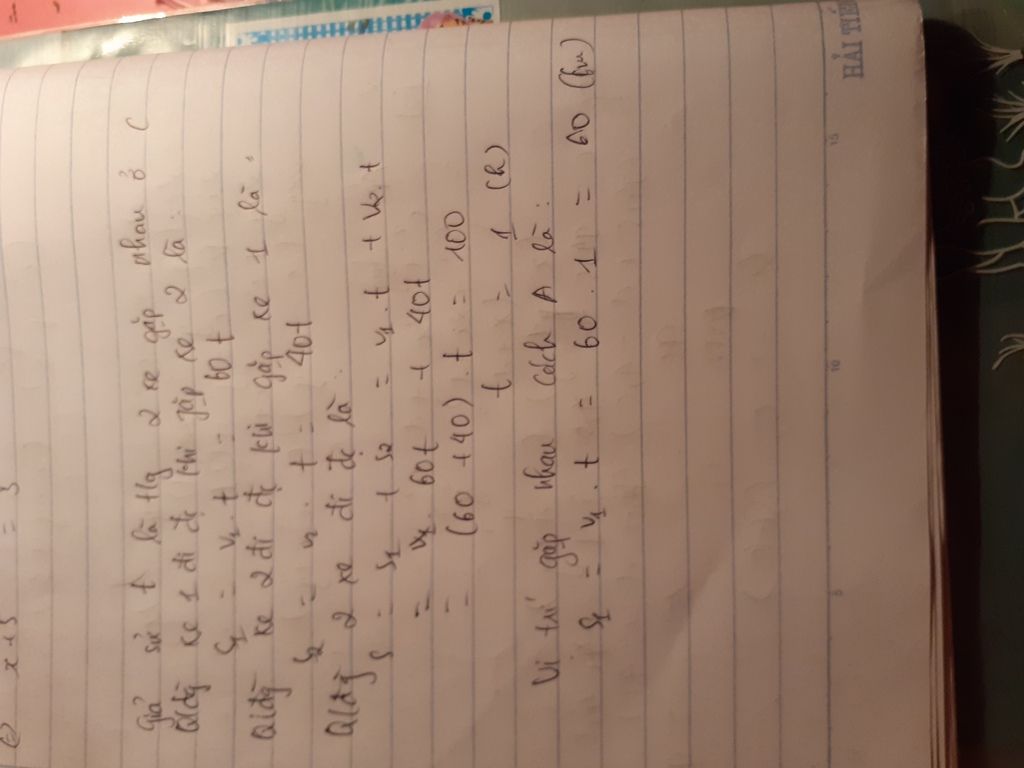 x + 5 = 3
giả sử t là tg 2 xe gặp nhau ở C
Qldg xe 1 đi đc khi gặp xe 2 là:
S1 = v1 t = 60 t
Qldg xe 2 đi đc khi gặp xe 1 là:
S2 = v2. t = 40t
Qldg 2 xe đi đc là
S = S1 + S2 = v1. t + v2. t
= 60t + 40t
= (60 + 40) . t = 100
t = 1 (h)
Vị trí gặp nhau cách A là:
S1 = v1. t = 60 . 1 = 60 (km)
HẢI TIẾN
5 10 15